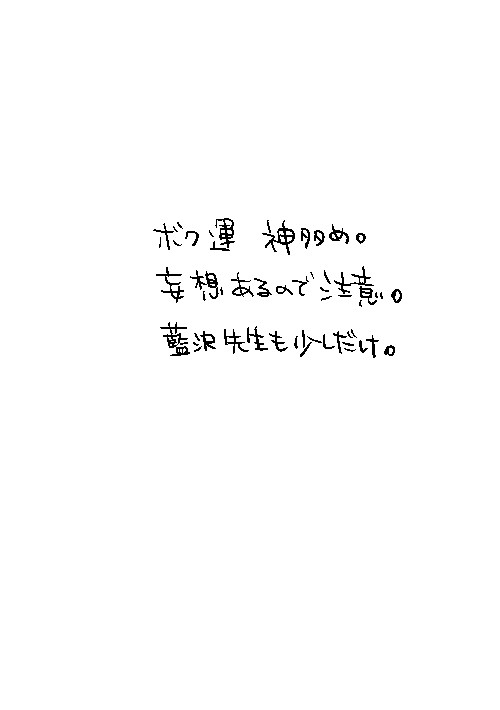 ボク運 神多め。
妄想あるので注意。
藍沢先生も少しだけ。